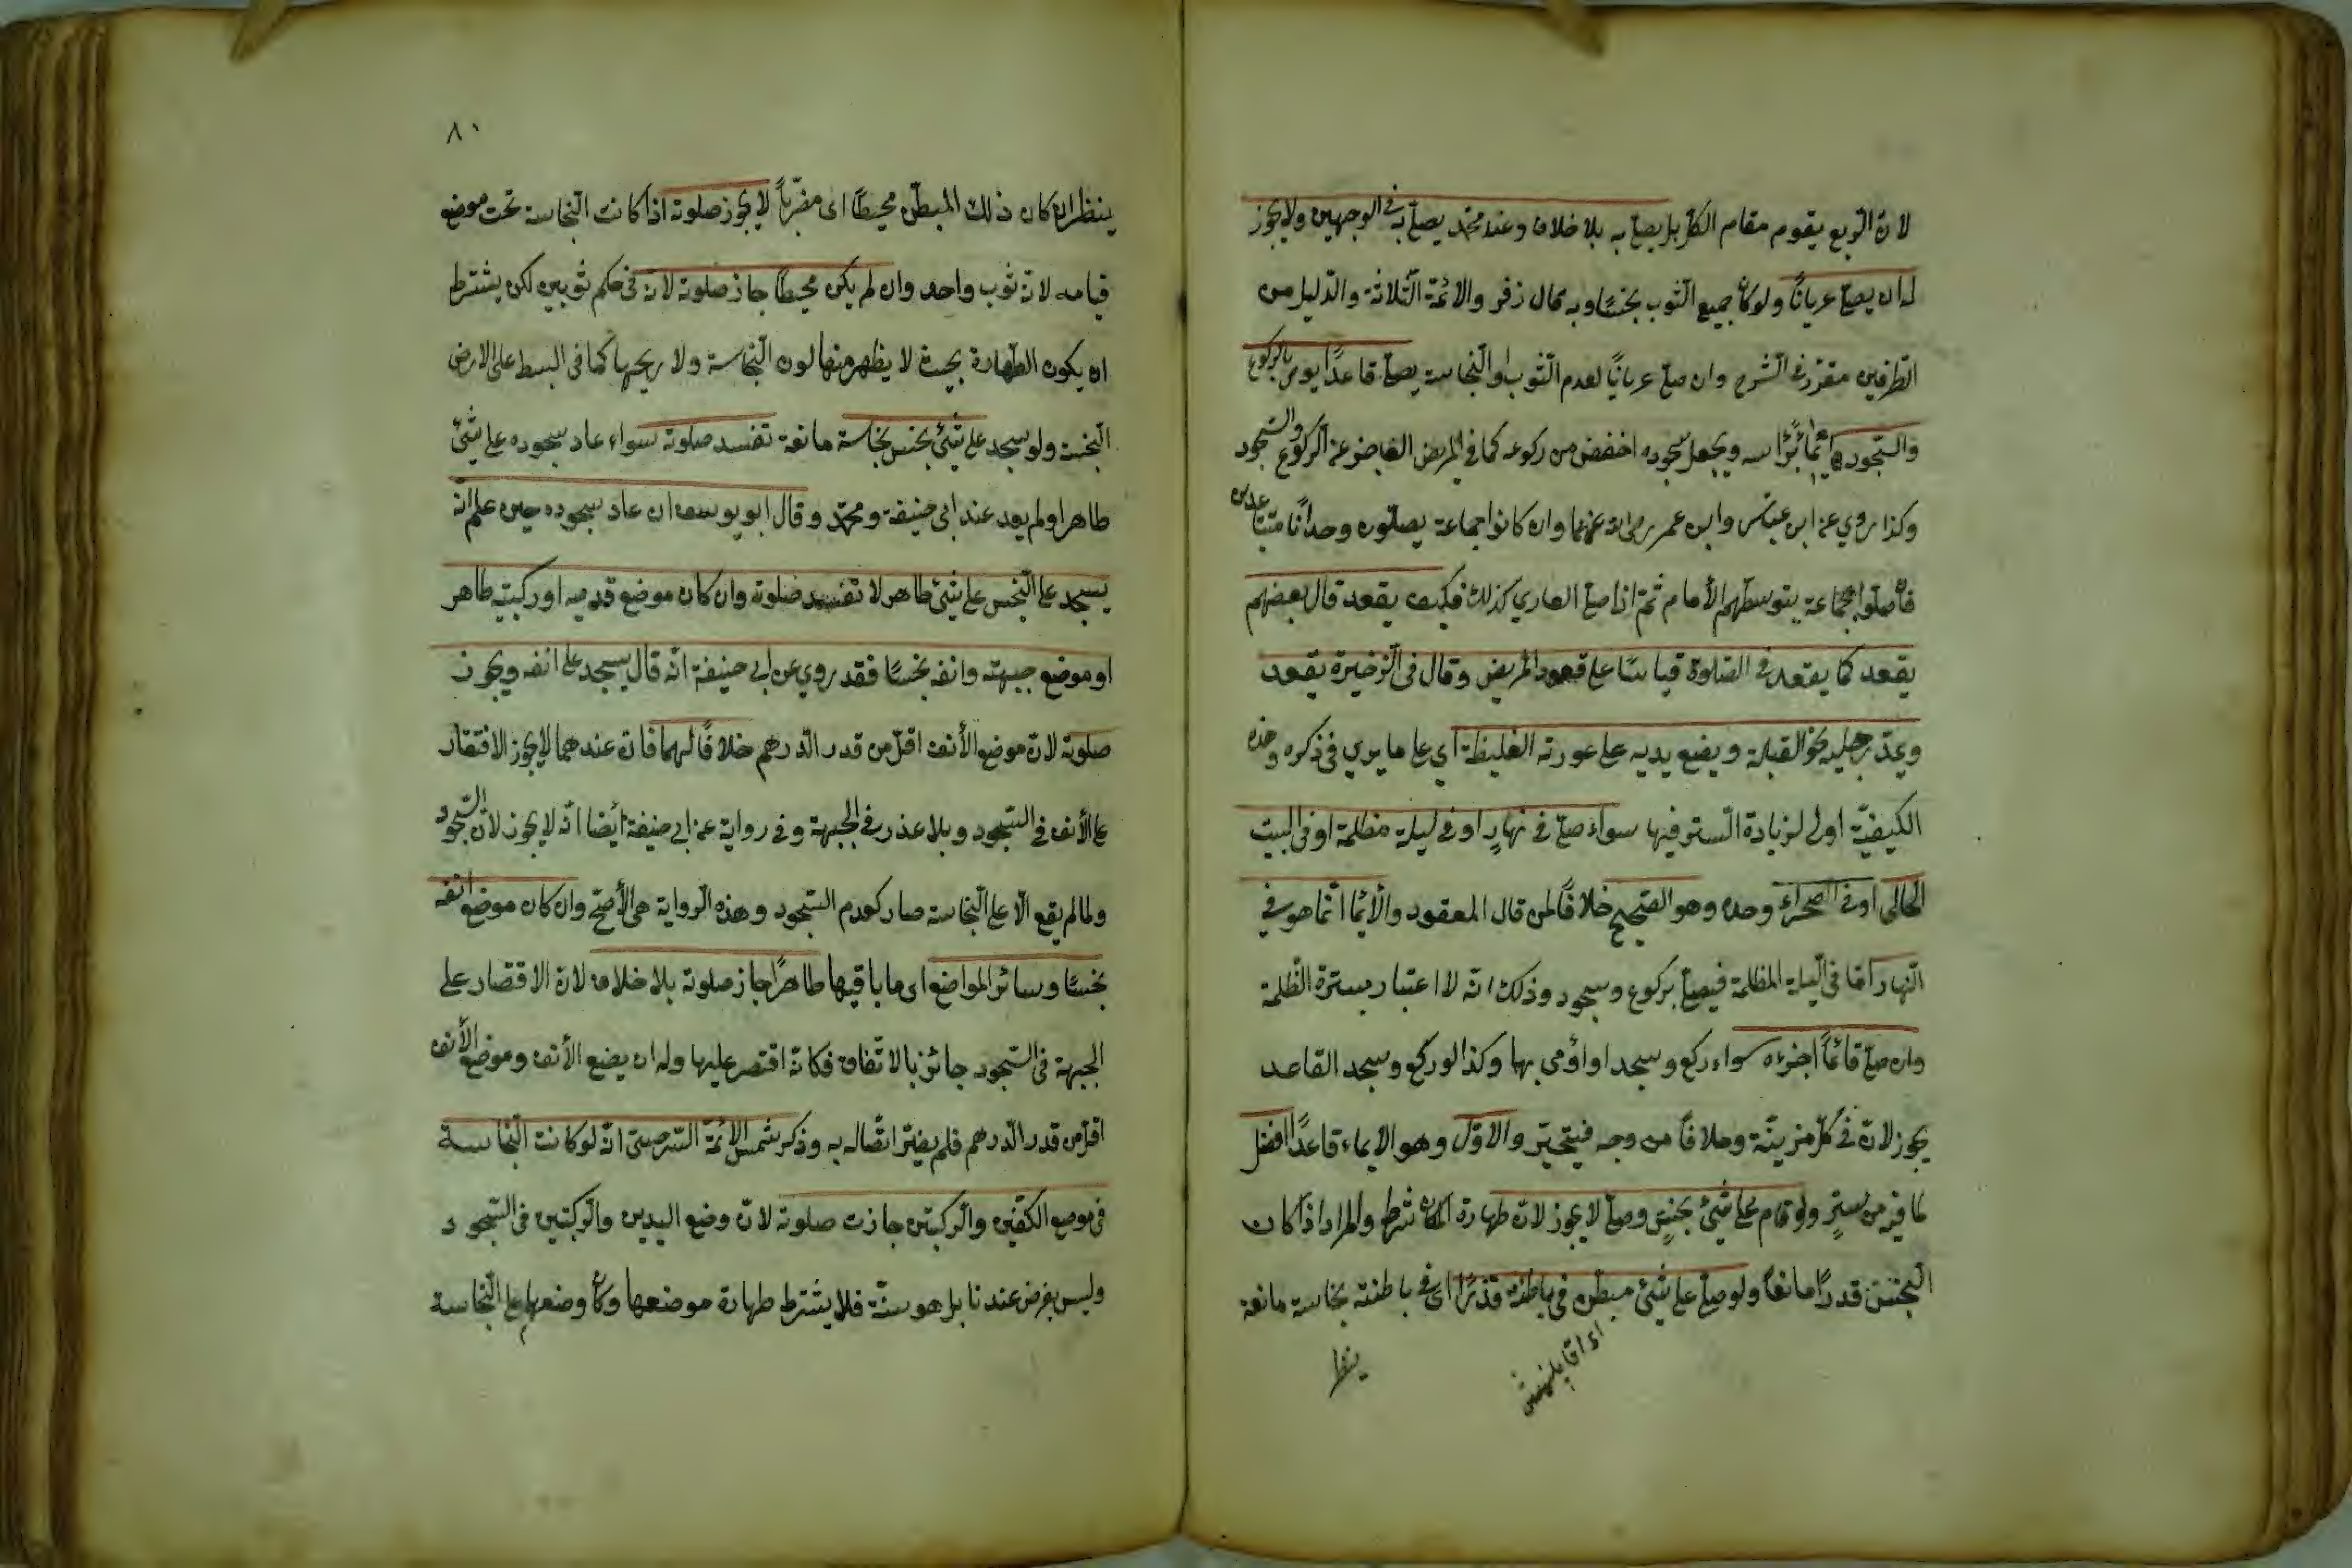 لان الربع يقوم مقام الكل بل يصلي به بلا خلاف وعند محمد يصلي به في الوجهين ولا يجوز
له ان يصلي عريانًا ولو كان جميع الثوب نجسًا وبه قال زفر والائمة الثلاثة والدليل من
الطرفين مقرر في الشرح وان صلى عريانًا لعدم الثوب او النجاسة يصلي قاعدًا يومي بالركوع
والسجود ايمائًا براسه ويجعل سجوده اخفض من ركوعه كما في المريض العاجز عن الركوع والسجود
وكذا روي عن ابن عباس وابن عمر رضى الله عنهما وان كانوا جماعة يصلون وحدانًا متباعدين
فان صلوا بجماعة يتوسطهم الأمام ثم اذا صلى العاري كذلك فكيف يقعد قال بعضهم
يقعد كما يقعد في الصلوة قياسًا على قعود المريض وقال في الذخيرة يقعد
ويمد رجليه نحو القبلة ويضع يديه على عورته الغليظة اي على ما يري في ذكره وهذه
الكيفية اولى لزيادة الستر فيها سواء صلى في نهارٍ او في ليلة مظلمة او في البيت
الخالى او في الصحراء وحده وهو الصحيح خلافًا لمن قال القعود والأيما انما هو في
النهار اما في الليلة المظلمة فيصلي بركوع وسجود وذلك انه لا اعتبار بسترة الظلمة
وان صلى قائمًا اجزءه سواء ركع وسجد او اؤمى بها وكذا لو ركع وسجد القاعد
يجوز لان في كل مزيّة وخلافًا من وجه فيتخير والاول وهو الايماء قاعدًا افضل
لما فيه من سترٍ ولو قام على شيئ نجسٍ وصلى لا يجوز لان طهارة المكان شرط والمراد اذا كان
النجس قدرًا مانعًا ولو صلى على شيئ مبطن في باطنه قذرًا اى في باطنته نجاسة مانعة
ينظر
٨٠
ينظر ان كان ذلك المبطن مخيطًا اى مضربًا لا يجوز صلوته اذا كانت النجاسة تحت موضع
قيامه لانه ثوب واحد وان لم يكن مخيطًا جاز صلوته لانه في حكم ثوبين لكن يشترط
ان يكون الطهارة بحيث لا يظهر منها لون النجاسة ولا ريحها كما في البسط على الارض
النجسة ولو سجد على شيئ نجس نجاسة مانعة تفسد صلوته سواء عاد سجوده على شيئ
طاهر او لم يعد عند ابى حنيفة ومحمد وقال ابو يوسف ان عاد سجوده حين علم انه
يسجد على النجس على شيئ طاهر لا تفسد صلوته وان كان موضع قدميه او ركبتيه طاهر
او موضع جبهته وانفه نجسًا فقد روي عن ابى حنيفة انه قال يسجد على انفه ويجوز
صلوته لان موضع الأنف اقل من قدر الدرهم خلافًا لهما فان عندهما لا يجوز الاقتصار
على الأنف في السجود وبلا عذر في الجبهة وفي رواية عن ابى حنيفة أيضا انه لا يجوز لان السجود
ولما لم يقع الا على النجاسة صار كعدم السجود وهذه الرواية هي الأصح وان كان موضع انفه
نجسًا وسائر المواضع اى ما باقيها طاهرًا جاز صلوته بلا خلاف لان الاقتصار على
الجبهة في السجود جائز بالاتفاق فكانه اقتصر عليها وله ان يضع الأنف وموضع الأنف
اقل من قدر الدرهم فلم يضر اتصاله به وذكر شمس الائمة السرخسى انه لو كانت النجاسة
في موضع الكفين والركبتين جازت صلوته لان وضع اليدين والركبتين في السجود
وليس بفرض عندنا بل هو سنة فلا يشترط طهارة موضعها وكان وضعها على النجاسة